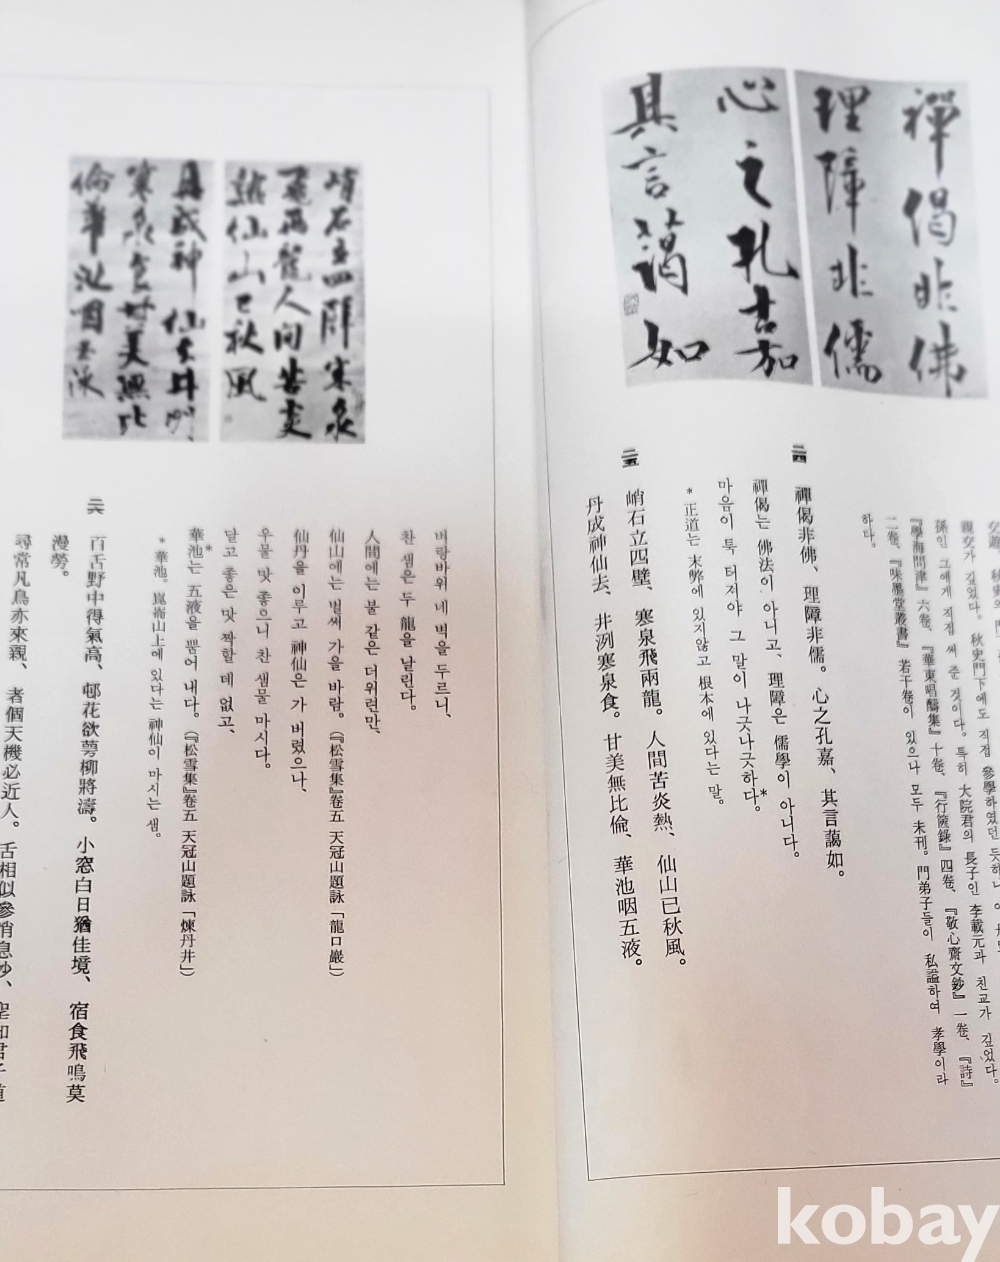 禪偈非佛
理障非儒
心之孔嘉
其言藹如
親交가 깊었다。秋史門下에도 직접 參學하였던 듯하니
孫인 그에게 직접 써 준 것이다。특히 大院君의 長子인 李載元과 친교가 깊었다。
『學海問津』六卷、『華東唱酬集』十卷、『行篋錄』四卷、『敬心齋文鈔』一卷、『詩』
二卷、『味墨堂叢書』若干卷이 있으나 모두 未刊。門弟子들이 私諡하여 孝學이라
하다。
二四 禪偈非佛、理障非儒。心之孔嘉、其言藹如。
禪偈는 佛法이 아니고、理障은 儒學이 아니다。
마음이 툭 터져야 그 말이 나긋나긋하다。*
*正道는 末弊에 있지않고 根本에 있다는 말。
二五 峭石立四壁、寒泉飛兩龍。人間苦炎熱、仙山已秋風。
丹成神仙去、井冽寒泉食。甘美無比倫、華池咽五液。
峭石立四壁寒泉
飛兩龍人間苦炎
熱仙山已秋風
丹成神仙去井冽
寒泉食甘美無比
倫華池咽五液
벼랑바위 네 벽을 두르니、
찬 샘은 두 龍을 날린다。
人間에는 불 같은 더위련만、
仙山에는 벌써 가을 바람。(『松雪集』卷五 天冠山題詠「龍口巖」)
仙丹을 이루고 神仙은 가 버렸으나、
우물 맛 좋으니 찬 샘물 마시다。
달고 좋은 맛 짝할 데 없고、
華池*는 五液을 뿜어 내다。(『松雪集』卷五 天冠山題詠「煉丹井」)
*華池。崑崙山上에 있다는 神仙이 마시는 샘。
二六 百舌野中得氣高、邨花欲萼柳將濤。小窓白日猶佳境、宿食飛鳴莫
漫勞。
尋常凡鳥亦來親、者個天機必近人。舌相似參消息妙、聖知君子道
kobay